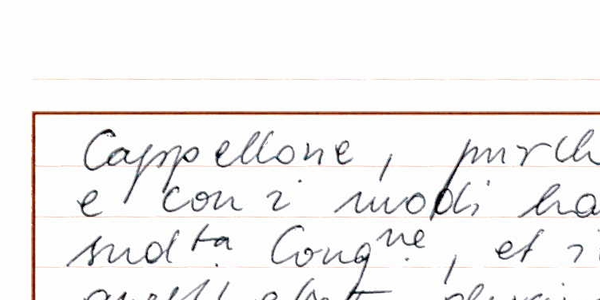 Cappellone, purch
e con i modi ha
sudta Congne, et i